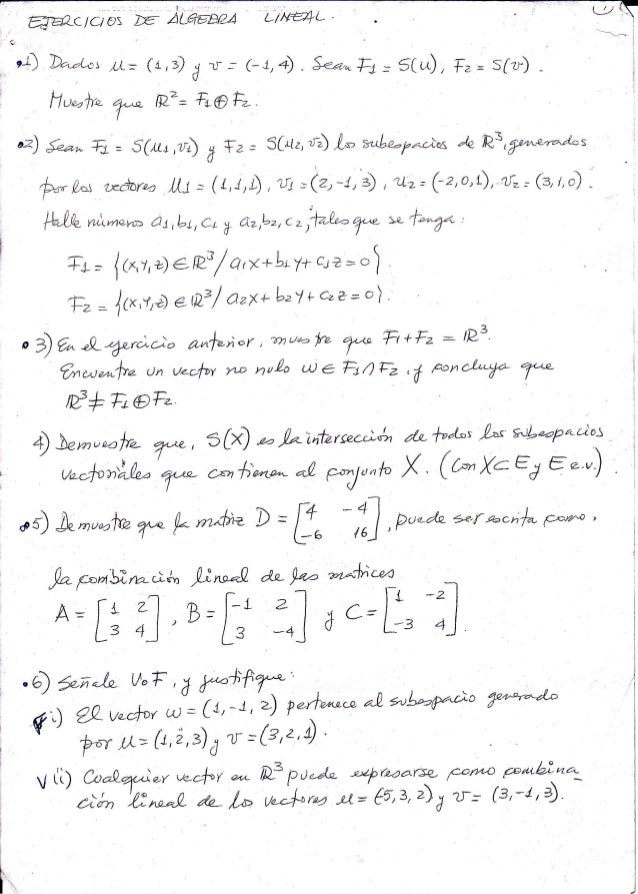 EJERCICIOS DE ÁLGEBRA LINEAL.
1) Dados u = (1,3) y v = (-1,4). Sean F1 = S(u), F2 = S(v).
Muestre que ℝ² = F1 ⊕ F2.
2) Sean F1 = S(u1,v1) y F2 = S(u2,v2) los subespacios de ℝ³, generados
por los vectores u1 = (1,1,1), v1 = (2,-1,3), u2 = (-2,0,1), v2 = (3,1,0).
Halle números a1, b1, c1 y a2, b2, c2, tales que se tenga:
F1 = {(x,y,z) ∈ ℝ³ / a1x + b1y + c1z = 0}.
F2 = {(x,y,z) ∈ ℝ³ / a2x + b2y + c2z = 0}.
3) En el ejercicio anterior, muestre que F1 + F2 = ℝ³.
Encuentre un vector no nulo w ∈ F1 ∩ F2, y concluya que
ℝ³ ≠ F1 ⊕ F2.
4) Demuestre que, S(X) es la intersección de todos los subespacios
vectoriales que contienen al conjunto X. (Con X ⊂ E y E e.v.)
5) Demuestre que la matriz D = [4 -4; -6 16], puede ser escrita como,
la combinación lineal de las matrices
A = [1 2; 3 4], B = [-1 2; 3 -4] y C = [1 -2; -3 4].
6) Señale V o F, y justifique:
F i) El vector w = (1,-1,2) pertenece al subespacio generado
por u = (1,2,3) y v = (3,2,1).
V ii) Cualquier vector en ℝ³ puede expresarse como combina_
ción lineal de los vectores u = (-5,3,2) y v = (3,-1,3).